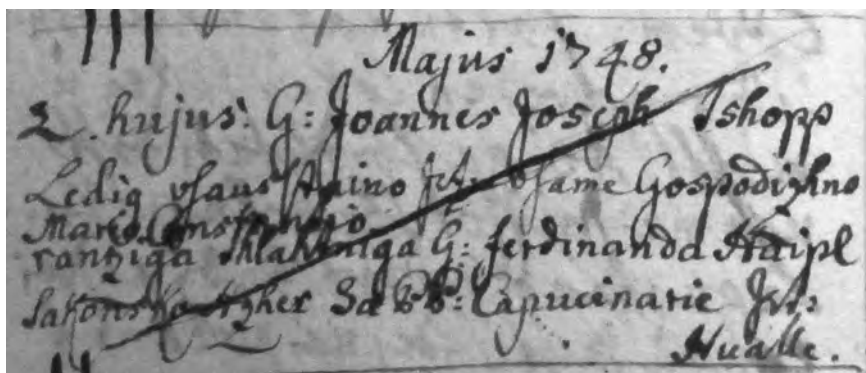 Majus 1748.
2. hujus: G: Joannes Joseph Tshopp
Ledig vsame Gospodizhno
Mario Constantio
rantziga G: Ferdinanda Haipl
Sakonsko Hzher Sa PP: Capucinarie
Hualle.